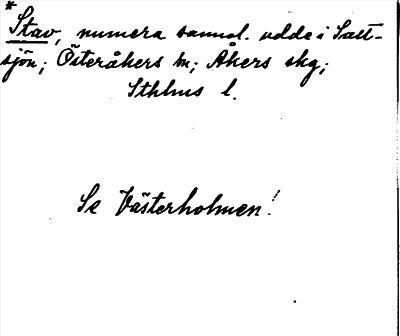 * Stav, numera sannol. udde i Salt-
sjön; Österåkers sn; Åkers skg;
Sthlms l.
Se Västerholmen!